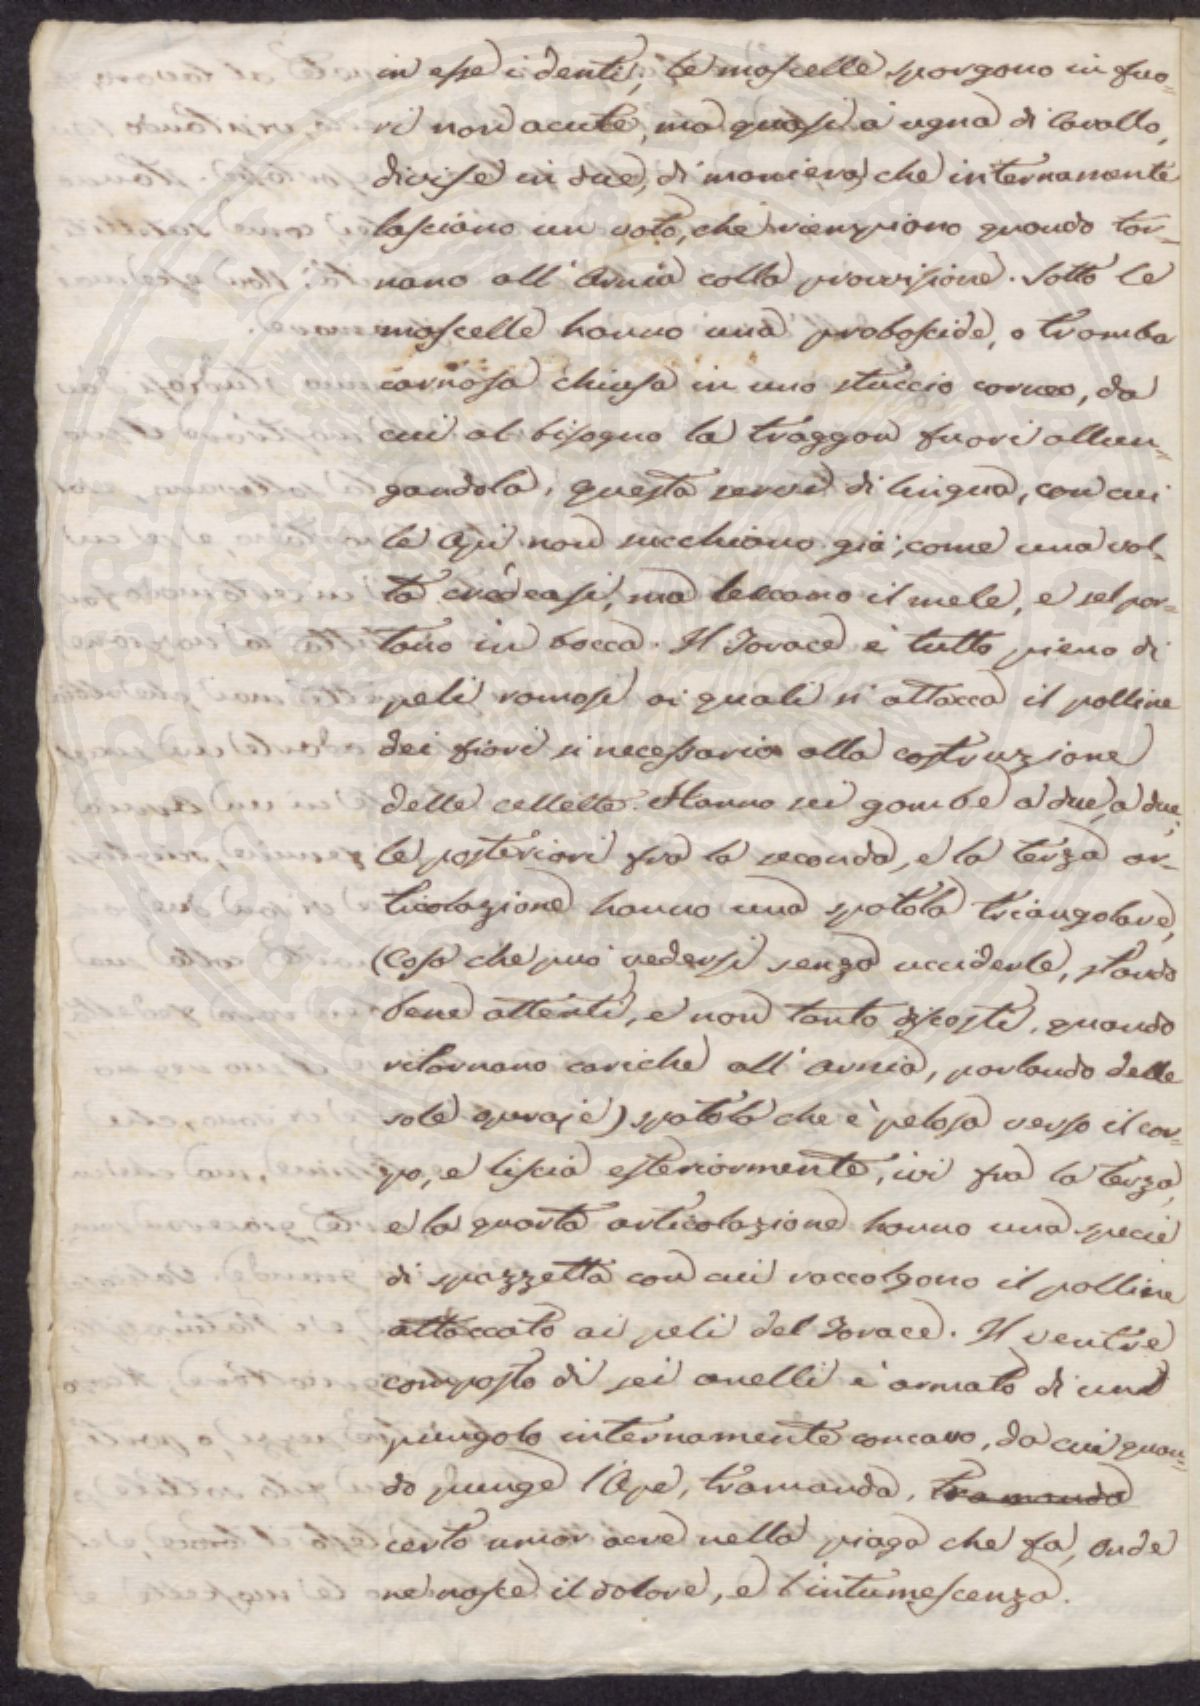 in esse i denti; le mascelle sporgono in fuo-
ri non acute, ma quasi a ugna di cavallo,
divise in due, di maniera che internamente
lasciano un voto, che riempiono quando tor-
nano all'Arnia colla provvisione. Sotto le
mascelle hanno una proboscide, o tromba
carnosa chiusa in uno stuccio corneo, da
cui al bisogno la traggon fuori allun-
gandola, questa serve di lingua, con cui
le Api non succhiano già, come una vol-
ta credeasi, ma leccano il mele, e sel por-
tano in bocca. Il Torace è tutto pieno di
peli ramosi ai quali s'attacca il polline
dei fiori sì necessario alla costruzione
delle cellette. Hanno sei gambe a due, a due;
le posteriori fra la seconda, e la terza ar-
ticolazione hanno una spatola triangolare,
(Cosa che può vedersi senza ucciderle, stando
bene attenti, e non tanto discosti, quando
ritornano cariche all'arnia, parlando delle
sole operaje) spatola che è pelosa verso il cor-
po, e liscia esteriormente, ivi fra la terza,
e la quarta articolazione hanno una specie
di spazzetta con cui raccolgono il polline
attaccato ai peli del Torace. Il ventre
composto di sei anelli è armato di un
pungolo internamente concavo, da cui quan-
do punge l'Ape, tramanda, tramanda
certo umor acre nella piaga che fa, onde
ne nasce il dolore, e l'intumescenza.